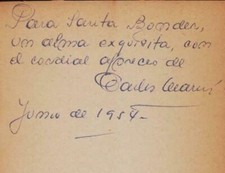 Para Santa Bonder,
un alma exquisita, con
el cordial aprecio de
Carlos
Junio de 1954-